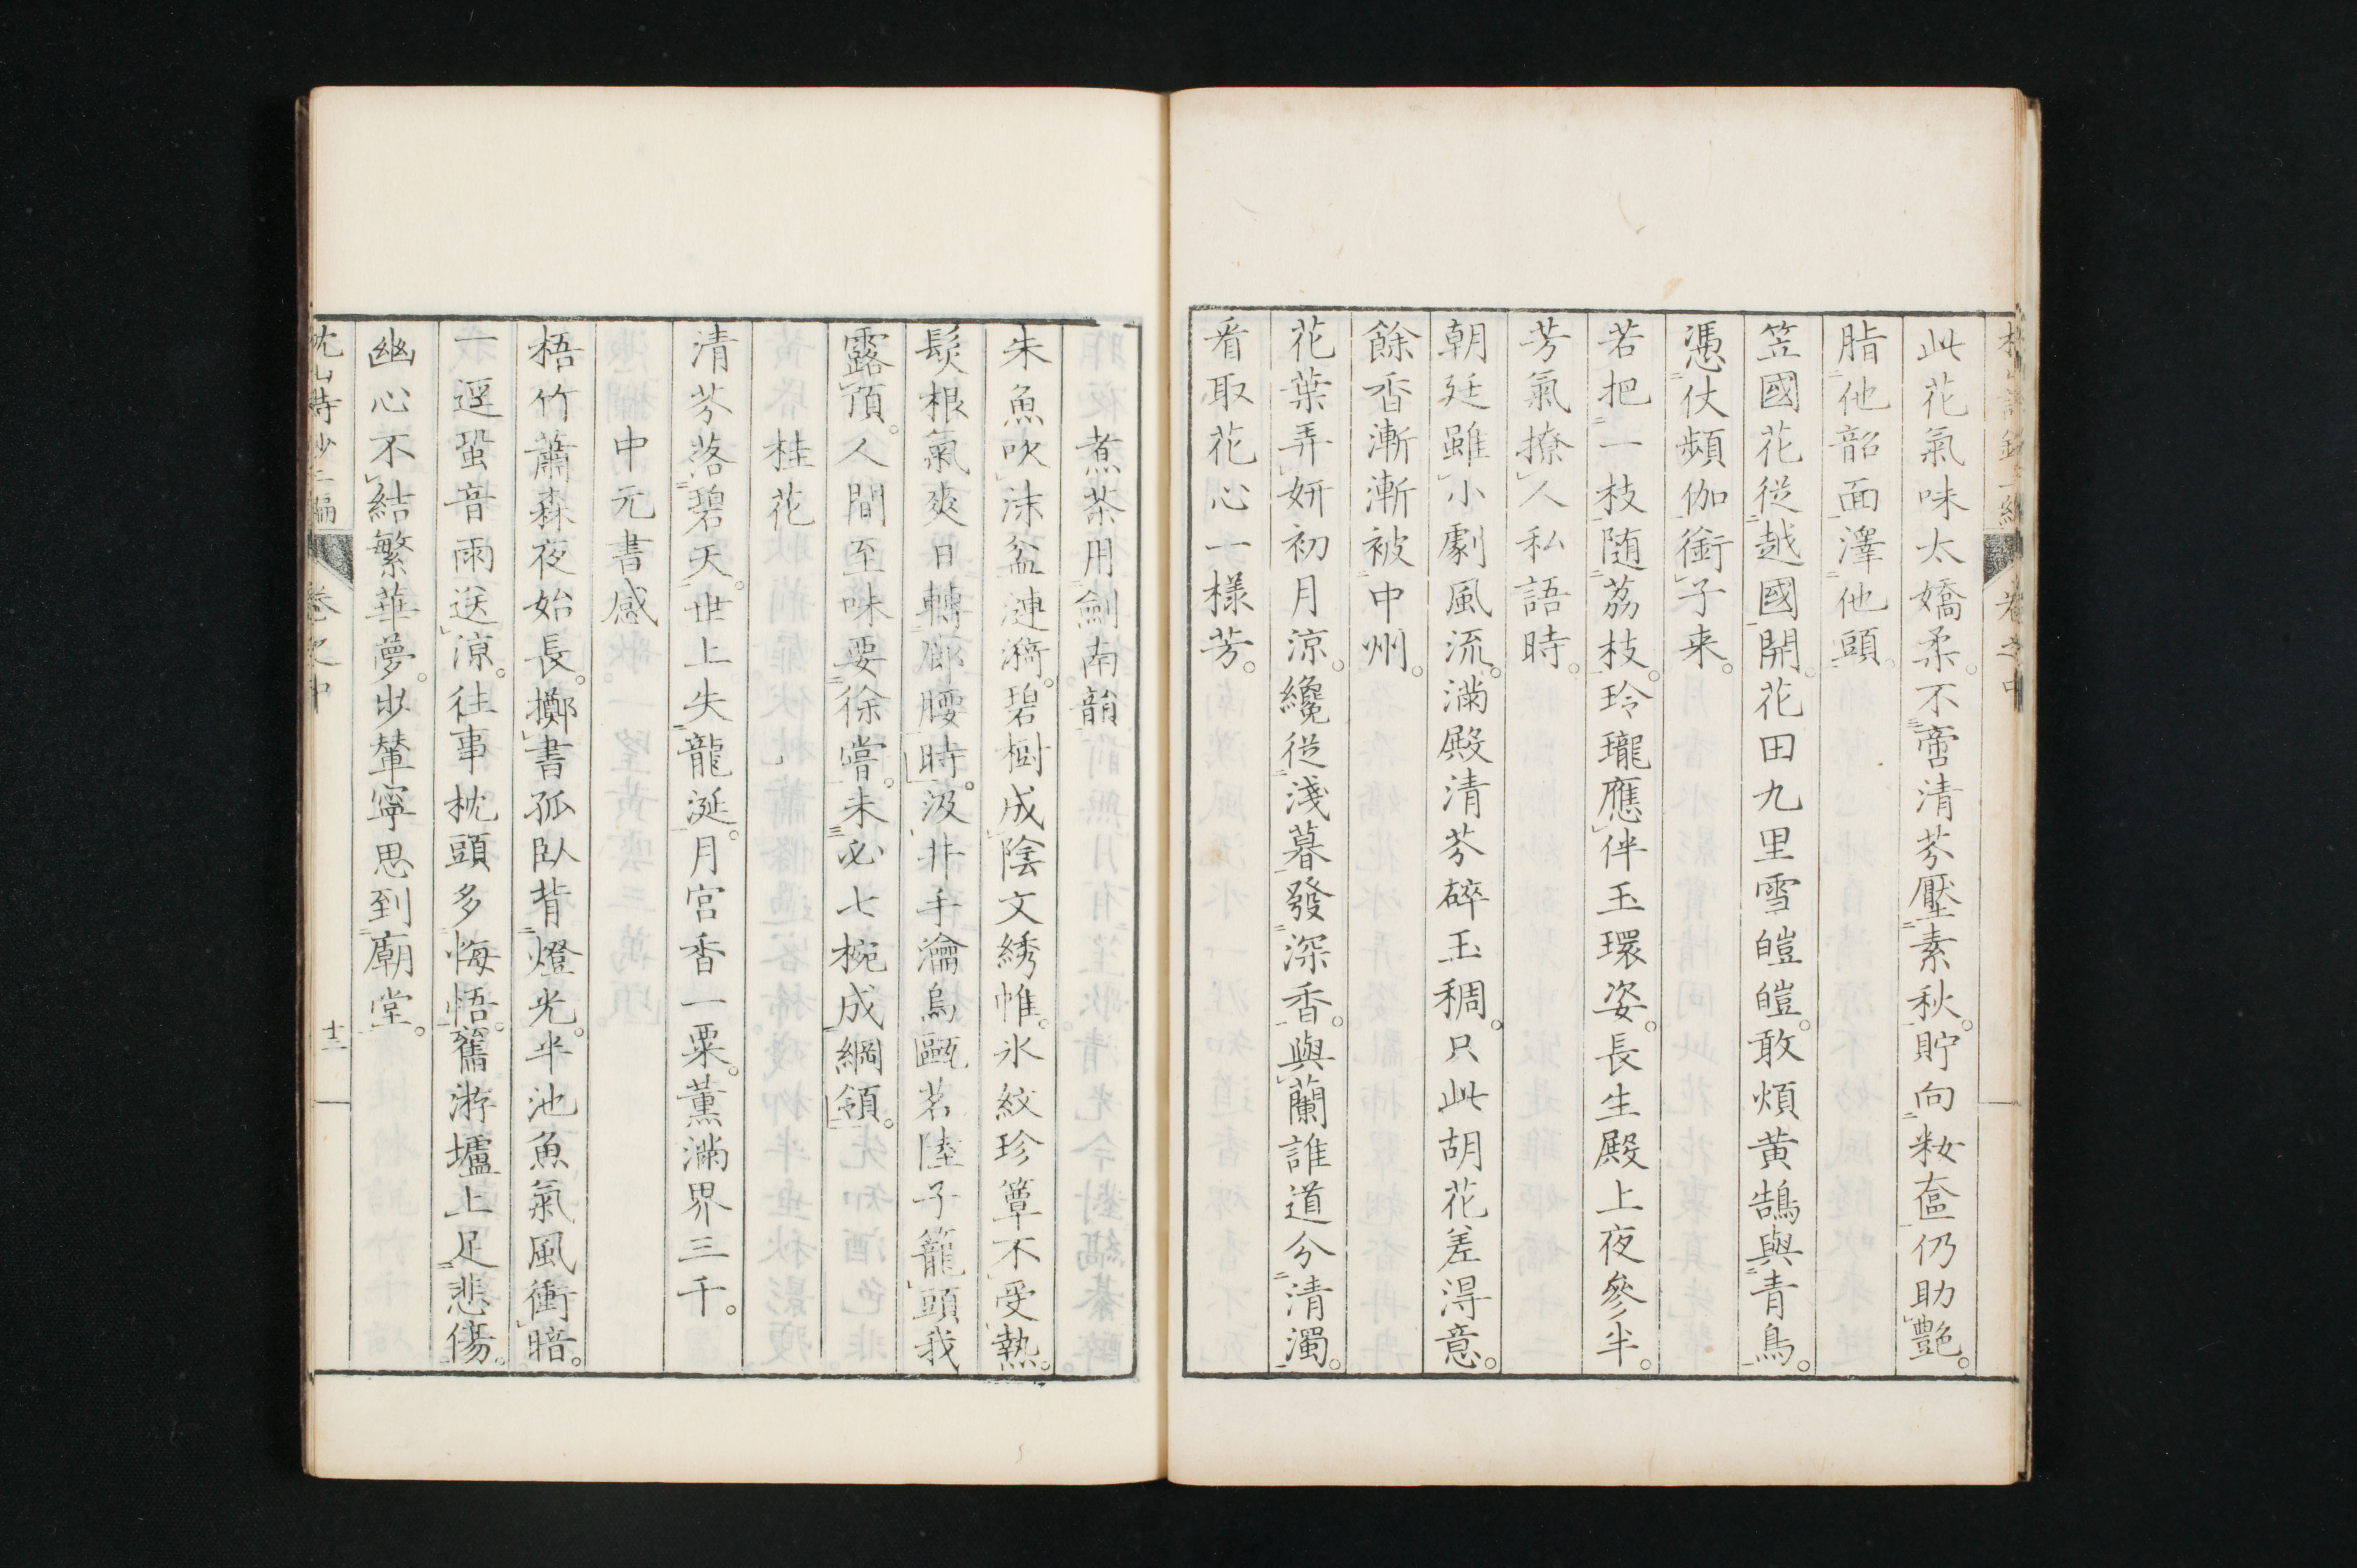 此花氣味太嬌柔。不啻清芬壓素秋。貯向粧奩仍助艷。
脂他韶面澤他頭。
笠國花從越國開。花田九里雪皚皚。敢煩黄鵠與青鳥。
憑仗頻伽銜子来。
若把一枝随荔枝。玲瓏應伴玉環姿。長生殿上夜參半。
芳氣撩人私語時。
朝廷雖小劇風流。滿殿清芬碎玉稠。只此胡花差得意。
餘香漸漸被中州。
花葉弄妍初月凉。纔從淺暮發深香。與蘭誰道分清濁。
看取花心一樣芳。
煮茶用劍南韻
朱魚吹沫盆漣漪。碧樹成陰文綉帷。氷紋珍簟不受熱。
鬂根氣爽日轉廊腰時。汲井手瀹烏甌茗。陸子籠頭我
露頂。人間至味要徐嘗。未必七椀成綱領。
桂花
清芬落碧天。世上失龍涎。月宮香一粟。薫滿界三千。
中元書感
梧竹蕭森夜始長。擲書孤臥背燈光。半池魚氣風衝暗。
一逕蛩音雨送凉。往事枕頭多悔悟。舊游壚上足悲傷。
幽心不結繁華夢。也輦寧思到廟堂。
枕山詩鈔二編
卷之中
十二